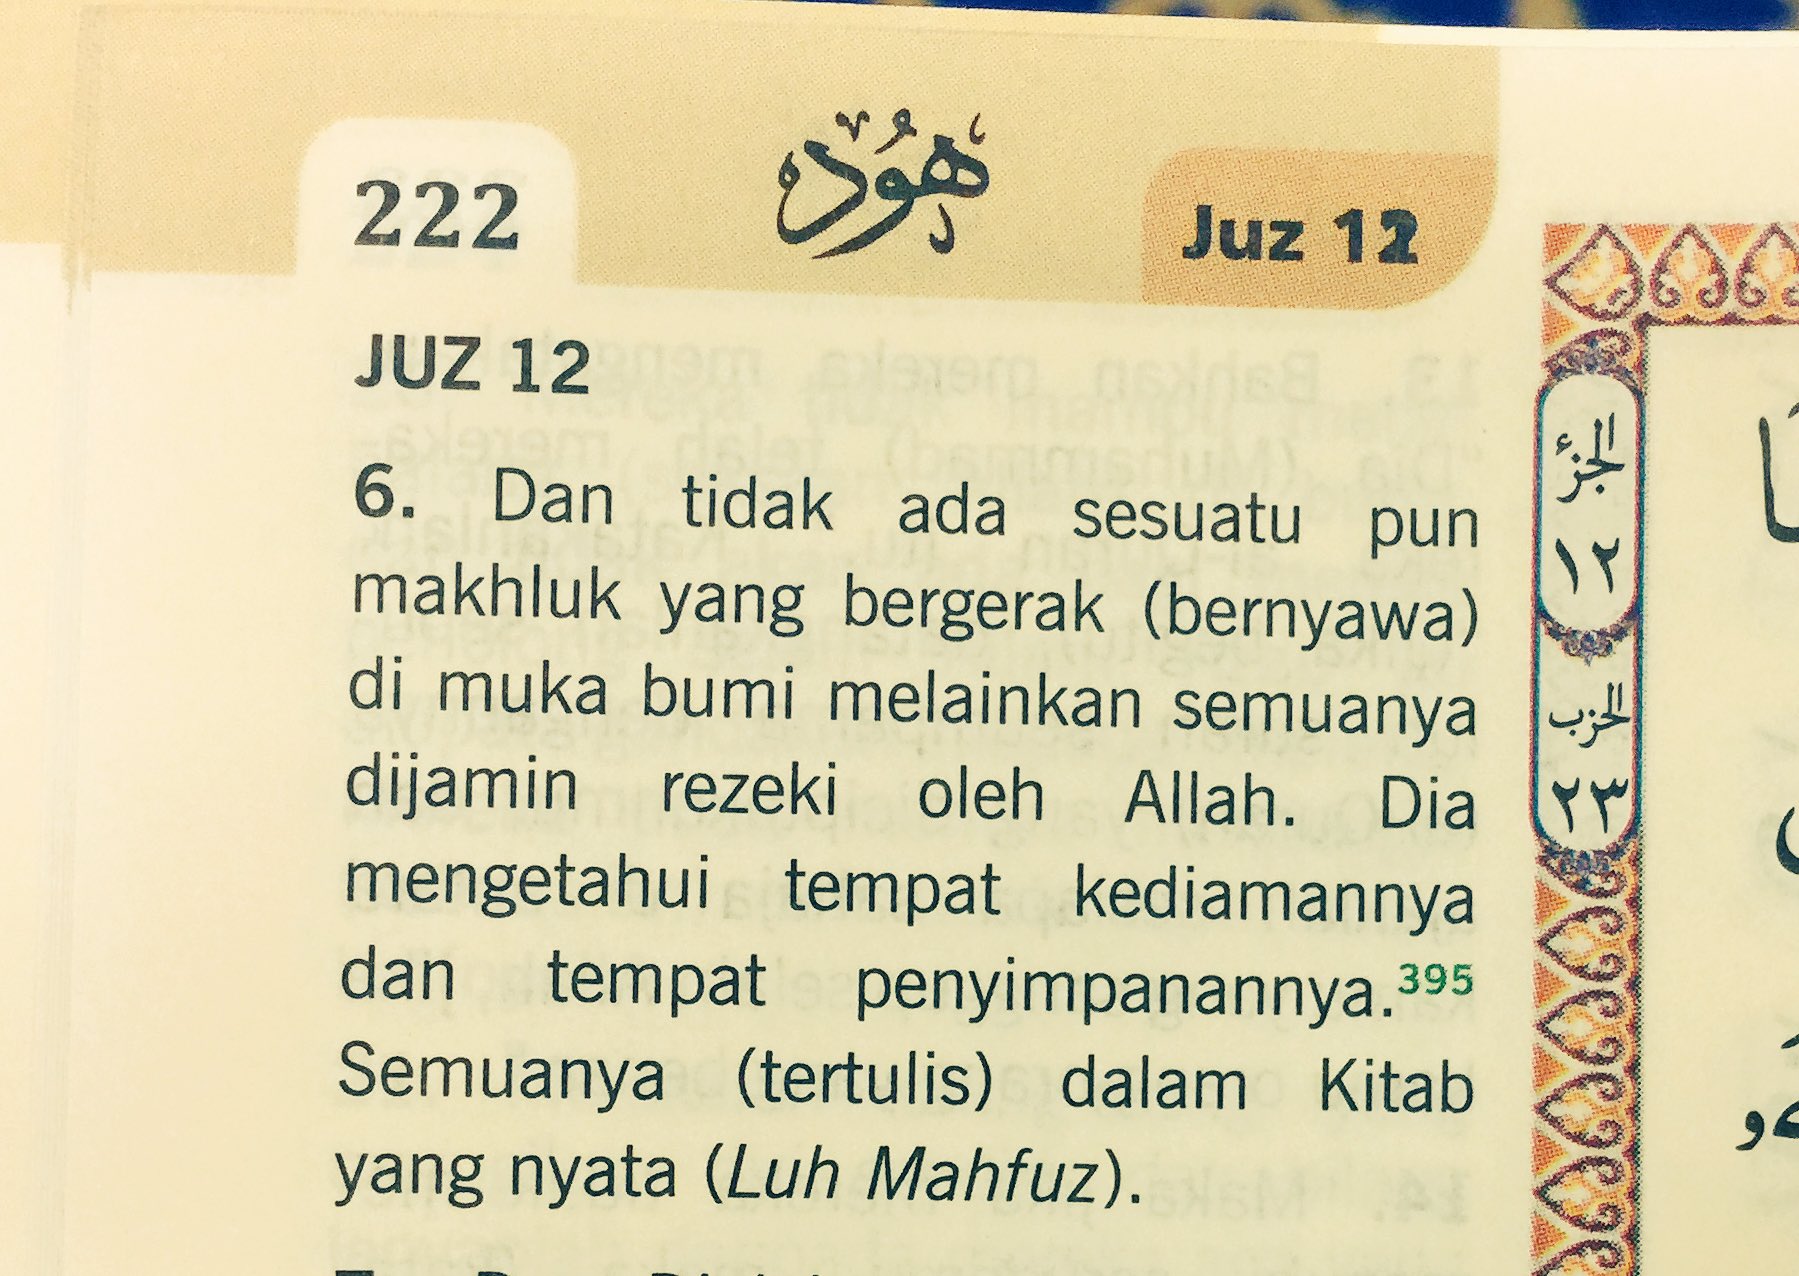 222
هُود
Juz 12
JUZ 12
6. Dan tidak ada sesuatu pun
makhluk yang bergerak (bernyawa)
di muka bumi melainkan semuanya
dijamin rezeki oleh Allah. Dia
mengetahui tempat kediamannya
dan tempat penyimpanannya.³⁹⁵
Semuanya (tertulis) dalam Kitab
yang nyata (Luh Mahfuz).
الجزء
١٢
الحزب
٢٣